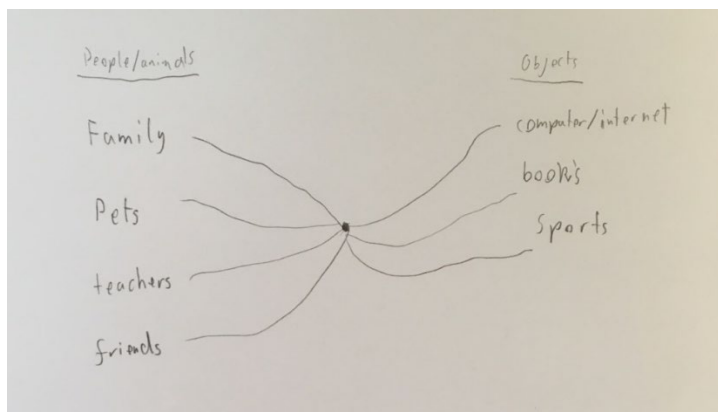 People/animals
Family
Pets
teachers
friends
Objects
computer/internet
book's
Sports